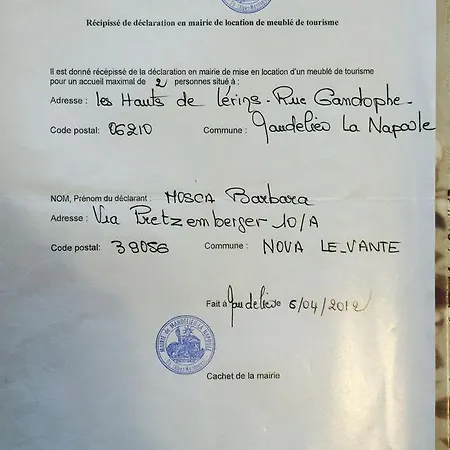 Récipissé de déclaration en mairie de location de meublé de tourisme
Il est donné récépissé de la déclaration en mairie de mise en location d'un meublé de tourisme
pour un accueil maximal de 2 personnes situé à :
Adresse : les Hauts de Lérins - Rue Gandophe -
Code postal: 06210 Commune : Mandelieu La Napoule
NOM, Prénom du déclarant : MOSCA Barbara
Adresse : Via Pretzemberger 10/A
Code postal: 39056 Commune : NOVA LEVANTE
Fait à Mandelieu le 6/04/2012
MAIRIE DE MANDELIEU
Cachet de la mairie